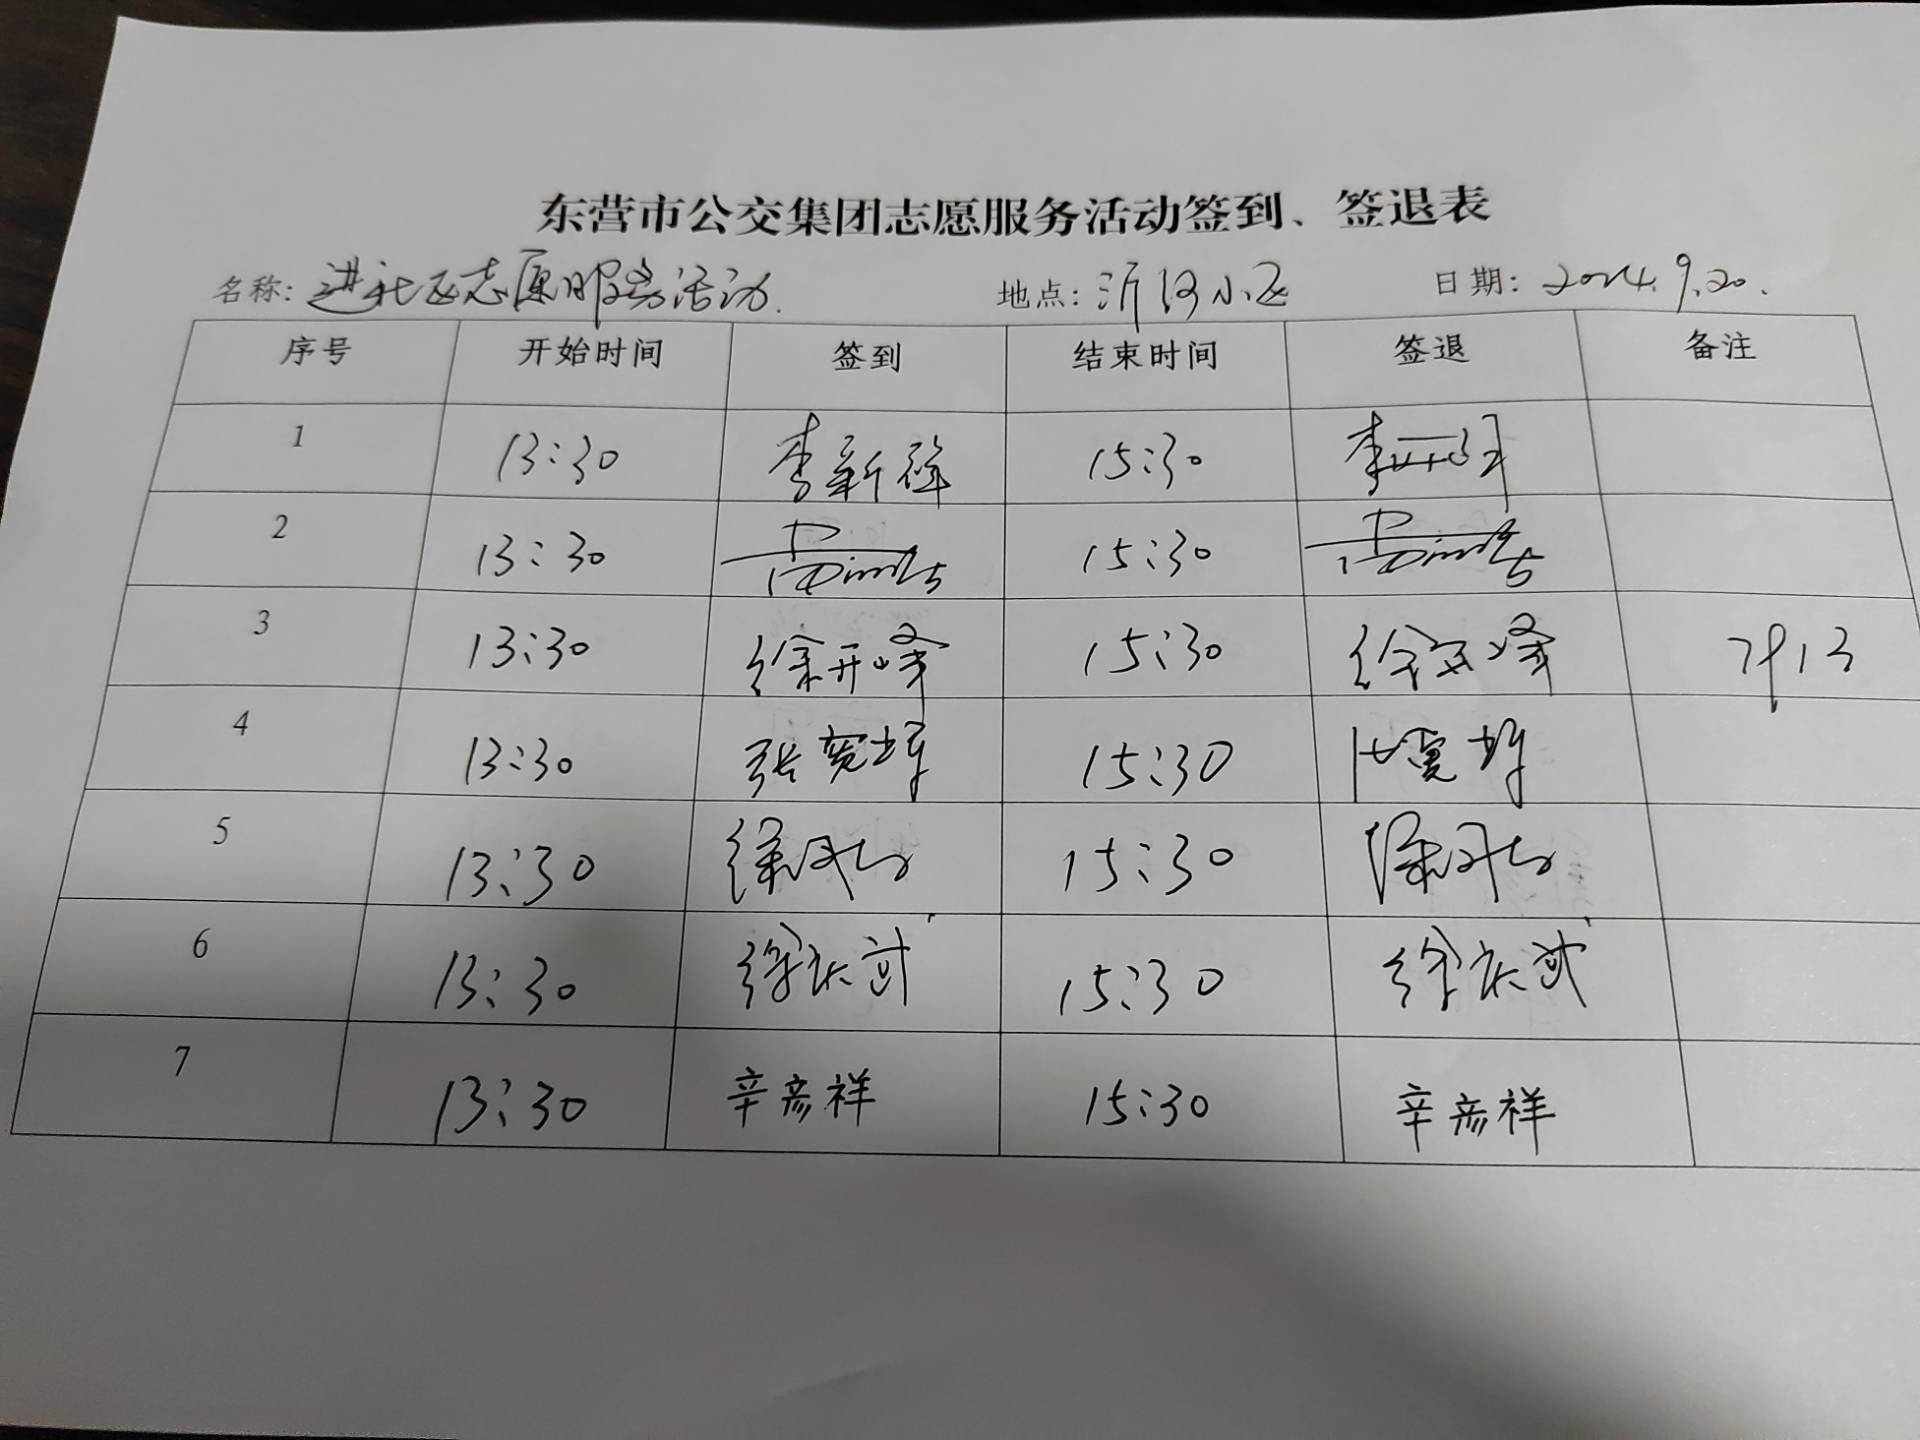 东营市公交集团志愿服务活动签到、签退表
名称: 进社区志愿服务活动. 地点: 沂河小区 日期: 2024.9.20.
序号 开始时间 签到 结束时间 签退 备注
1 13:30 李新 15:30 李
2 13:30 15:30
3 13:30 徐开峰 15:30 徐开峰
4 13:30 张宽 15:30
5 13:30 徐 15:30 徐
6 13:30 徐 15:30 徐
7 13:30 辛彦祥 15:30 辛彦祥